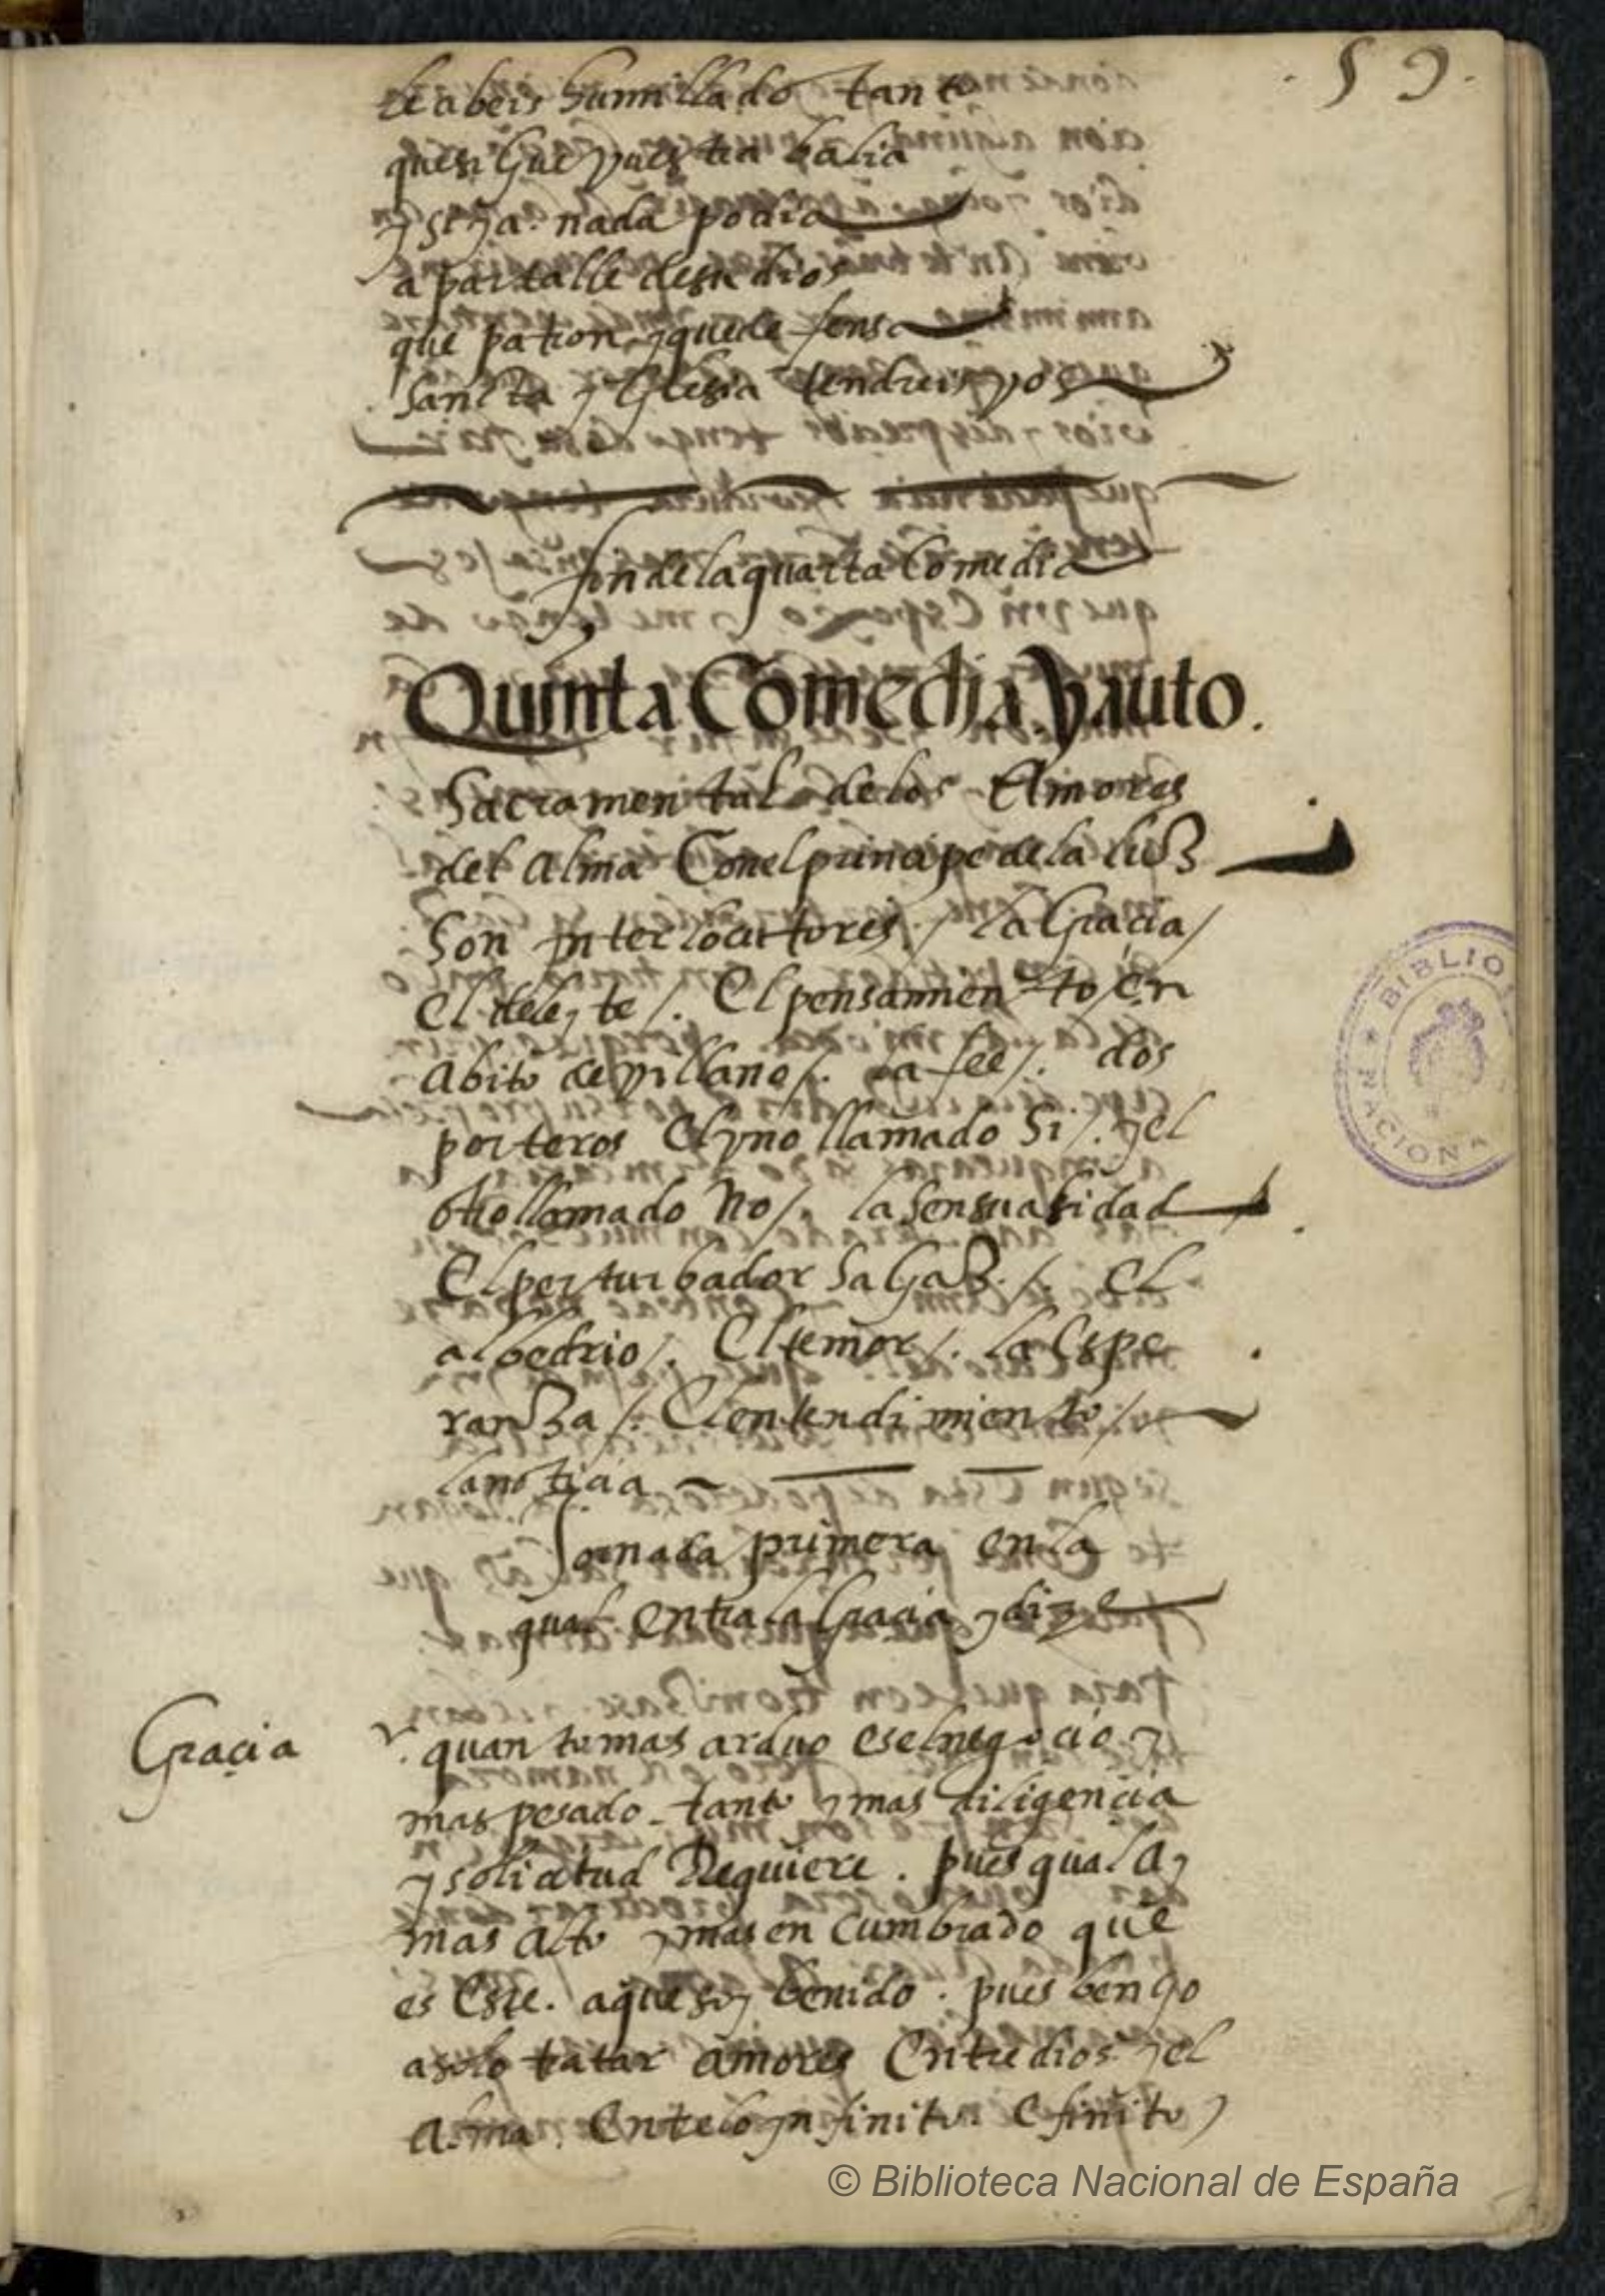 59.
le abeis humillado tanto
que si hue vuestra valia
y seña nada podia
apartalle desu dios
que patron y quede fensa
Sancta yglesia tendreis vos
fin de la quarta Comedia
Quinta Comedia yauto.
Sacramental de los Amores
del Alma Con el principe de la luz
Son ynterlocutores / la Gracia /
El deleyte /. El pensamiento / en
Abito de villano /. la fee /. dos
porteros El vno llamado Si /. y el
otro llamado No /. la Sensualidad
El perturbador Sagaz. /. El
albedrio /. El temor /. la Espe
ranza /. El entendimiento /.
la noticia
Jornada primera en la
qual entra la Gracia y dize
Gracia quanto mas arduo es el negocio y
mas pesado. tanto y mas diligencia
y solicitud Requiere. pues qual ay
mas Alto y mas en cumbrado que
es Este. a que soy benido. pues bengo
a solo tratar amores Entre dios y el
Alma. Entre lo ynfinito e finito y
BIBLIO NACIONA
© Biblioteca Nacional de España